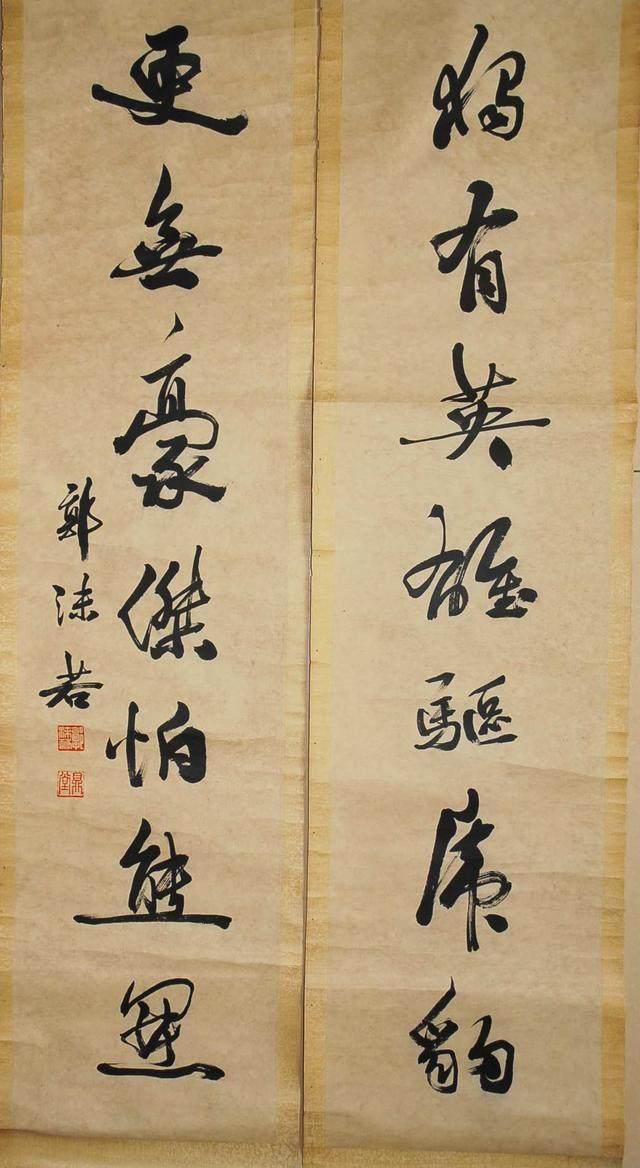 獨有英雄驅虎豹
更無豪傑怕熊羆
郭沫若
鼎堂